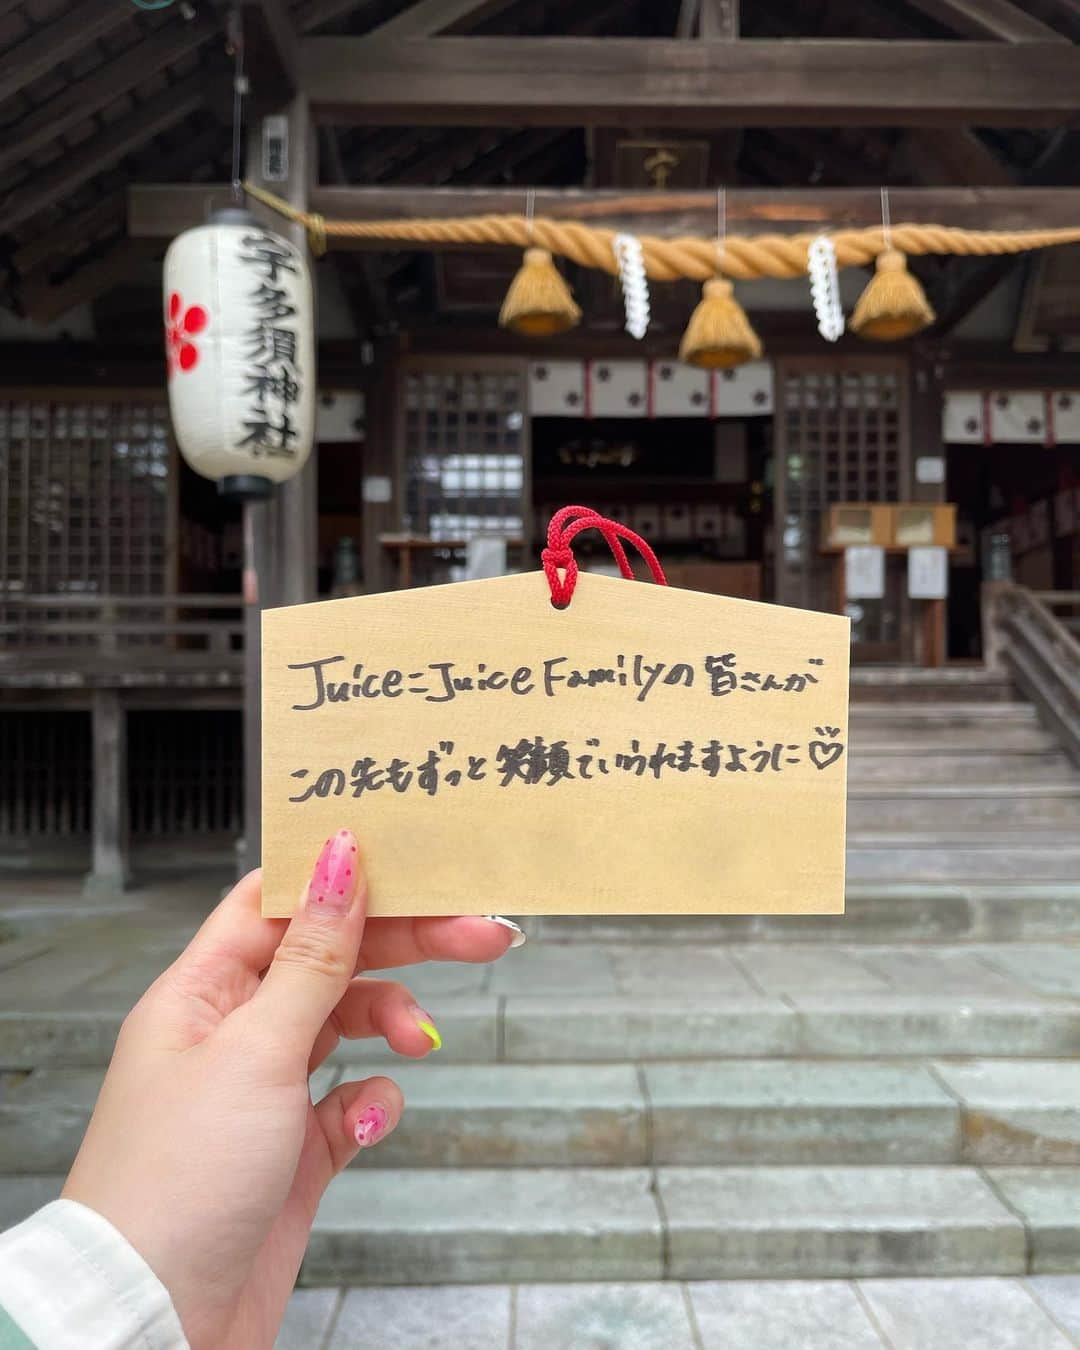 宇多須神社
Juice=Juice Familyの皆さんが
この先もずっと笑顔でいられますように♡